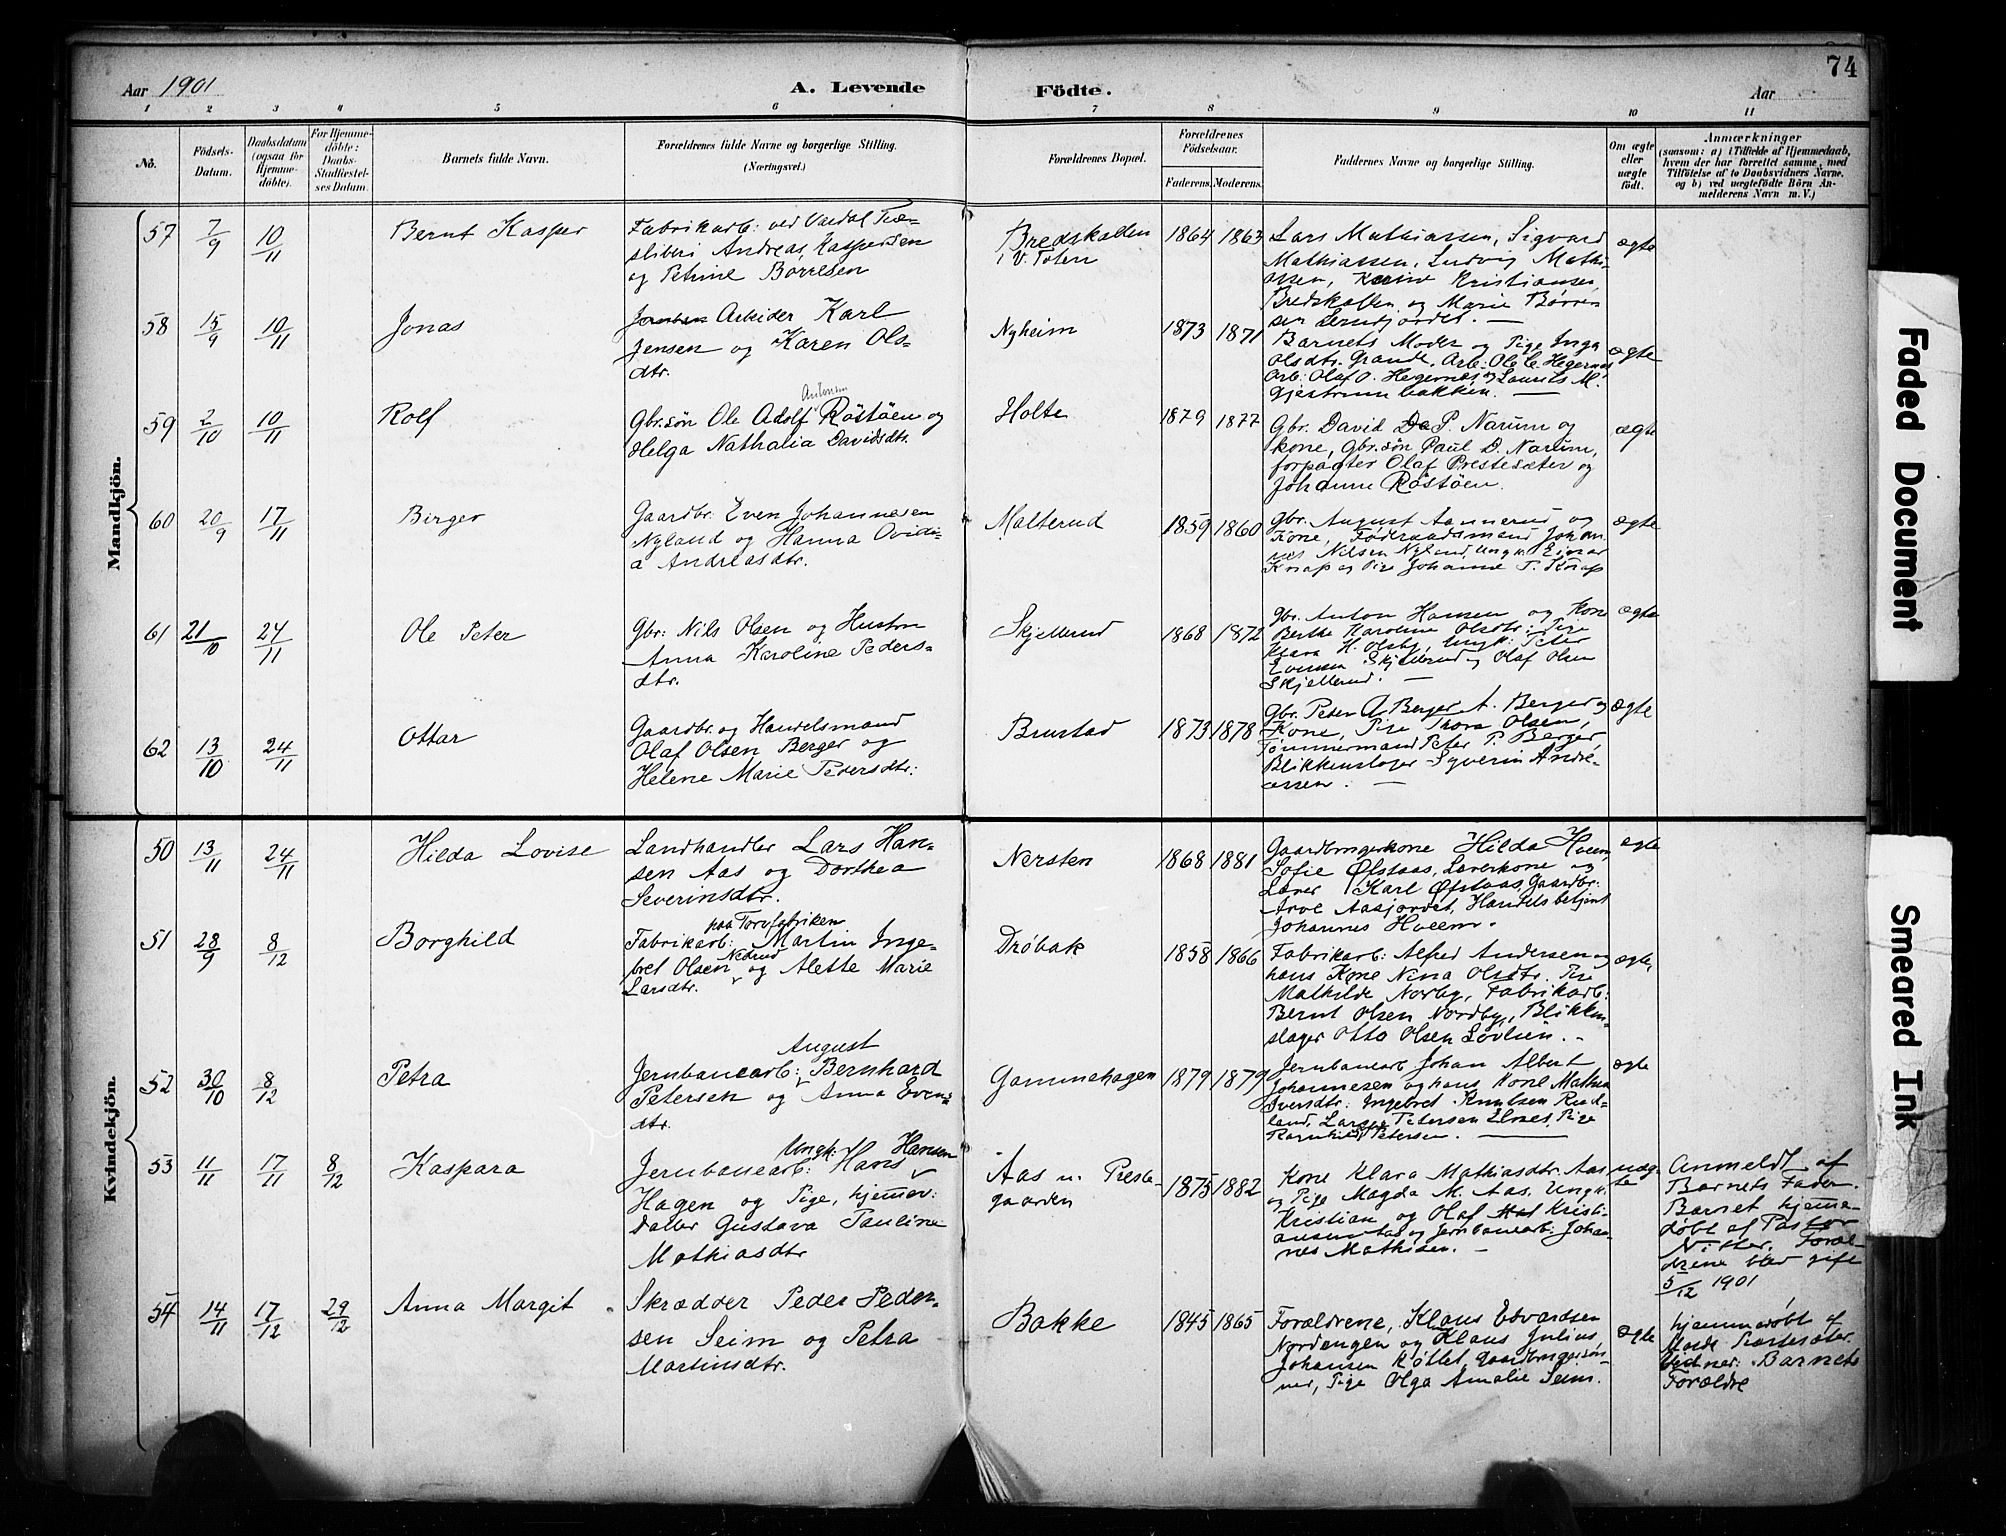 74
Aar 1901
A. Levende Födte.
Aar
1 2 3 4 5 6 7 8 9 10 11
No.
Födsels-
Datum.
Daabsdatum
(ogsaa for
Hjemme-
döbte).
For Hjemme-
döbte:
Daabs-
Stadfæstel-
ses Datum.
Barnets fulde Navn.
Forældrenes fulde Navne og borgerlige Stilling.
(Næringsvei.)
Forældrenes Bopæl.
Forældrenes
Födselsaar.
Faderens. Moderens.
Faddernes Navne og borgerlige Stilling.
Om ægte
eller
uægte
födt.
Anmærkninger
(saasom: a) i Tilfælde af Hjemmedaab,
hvem der har forrettet samme, med
Tilföielse af to Daabsvidners Navne,
og b) ved uægtefödte Börn An-
melderens Navn m. V.)
Mandkjön.
57 7/9 10/11
Bernt Kasper
Fabrikarb: ved Vardal Træ-
sliberi Andreas Kaspersen
og Petrine Børresen
Bredskallen
i V. Toten
1864 1863
Lars Mathiassen, Sigvard
Mathiassen, Ludvig Mathi-
assen, Karine Kristiansen,
Bredskallen og Marie Børre-
sen
ægte
58 15/9 10/11
Jonas
Arbeider Karl
Jensen og Karen Ols-
dtr.
Nyheim
1873 1871
Barnets Moder og Pige Inga
Olsdtr. Grande, Arb: Ole C. Hegernæs
Arb: Olaf O. Hegernæs og Laurits M.
Gjestrumbakken. —
ægte
59 2/10 10/11
Rolf
Antonsen
Gbr.søn Ole Adolf Röstöen og
Helga Nathalia Davidsdtr.
Holte
1879 1877
Gbr. David P. Narum og
kone, Gbr.søn Paul D. Narum,
forpagter Olaf Prestesæter og
Johanne Röstöen.
ægte
60 20/9 17/11
Birger
Gaardbr. Even Johannesen
Nyland og Hanna Ovidi-
a Andreasdtr.
Malterud
1859 1860
Gbr. August Aannerud og
Kone, Føderaadsmand Johan-
nes Nilsen Nyland, Ungk. Einar
Knap og Pige Johanne T. Knap
ægte
61 21/10 24/11
Ole Peter
Gbr: Nils Olsen og Hustru
Anna Karoline Peders-
dtr.
Skjellerud
1868 1872
Gbr. Anton Hansen og Kone
Berthe Karoline Olsdtr: Pige
Klara H. Olsby, Ungk: Peter
Evensen Skjellerud og Olaf Olsen
Skjellerud. —
ægte
62 13/10 24/11
Ottar
Gaardbr. og Handelsmand
Olaf Olsen Berger og
Helene Marie Pedersdtr:
Brustad
1873 1878
Gbr. Peter A. Berger og
Kone, Pige Thora Olsen,
Tømmermand Peter P. Berger,
Blikkenslager Syverin Andre-
assen. —
ægte
Kvindekjön.
50 13/11 24/11
Hilda Lovise
Landhandler Lars Han-
sen Aas og Dorthea
Severinsdtr.
Nersten
1868 1881
Gaardbrugerkone Hilda Hveem,
Sofie Ølstaas, Lærerkone og
Lærer Karl Ølstaas, Gaardbr:
Arve Aasjordet, Handelsbetjent
Johannes Hveem.
ægte
51 28/9 8/12
Borghild
paa Torvfabriken
Fabrikarb: Martin Inge-
bret Olsen Nedrud og Alette Marie
Larsdtr.
Drøbak
1858 1866
Fabrikarb: Alfred Andersen og
hans Kone Nina Olsdtr. Pige
Mathilde Norby, Fabrikarb:
Bernt Olsen Nordby, Blikken-
slager Otto Olsen Lövlien. —
ægte,
52 30/10 8/12
Petra
August
Jernbanearb: Bernhard
Petersen og Anna Evens-
dtr.
Gammehagen
1879 1879
Jernbanearb Johan Albert
Johannesen og hans Kone Mathea
Iversdtr: Ingebret Knutsen Rud-
land, Lars Petersen Pige
Ragnhild Petersen. —
ægte
53 11/11 17/11 8/12
Kaspara
Ungk: Hansen
Jernbanearb: Hans
Hagen og Pige, hjemmev:
Datter Gustava Pauline
Mathiasdtr
Aas u. Preste-
gaarden
1875 1882
Kone Klara Mathiasdtr. Aas
og Pige Magda M. Aas. Ungk:
Kristian og Olaf Kristi-
ansen Aas og Jernbanearb: Johan-
nes Mathisen. —
uæg-
te
Anmeldt af
Barnets Fader.
Barnet hjemme-
døbt af Pastor
Nitter. Foræl-
drene blev gift
5/12 1901
54 14/11 17/12 29/12
Anna Margit
Skrædder Peder Peder-
sen Seim og Petra
Martinsdtr.
Bakke
1845 1865
Forældrene, Klaus Edvardsen
Nordengen og Klaus Julius
Johansen Kollet, Gaardbrugersøn-
ner, Pige Olga Amalie Seim.
ægte
hjemmedöbt af
Prestesæter.
Vidner: Barnets
Forældre
Faded Document
Smeared Ink